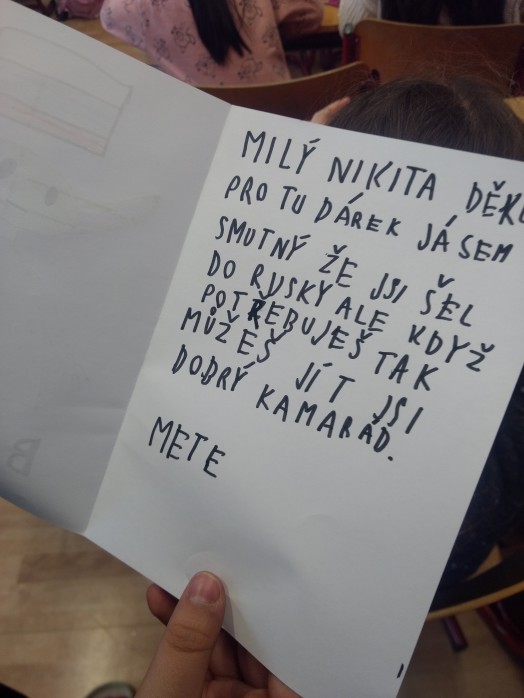 MILÝ NIKITA
PRO TU DÁREK JÁ SEM
SMUTNÝ ŽE JSI ŠEL
DO RUSKY ALE KDYŽ
POTŘEBUJEŠ TAK
MŮŽEŠ JÍT JSI
DOBRÝ KAMARÁD.
METE